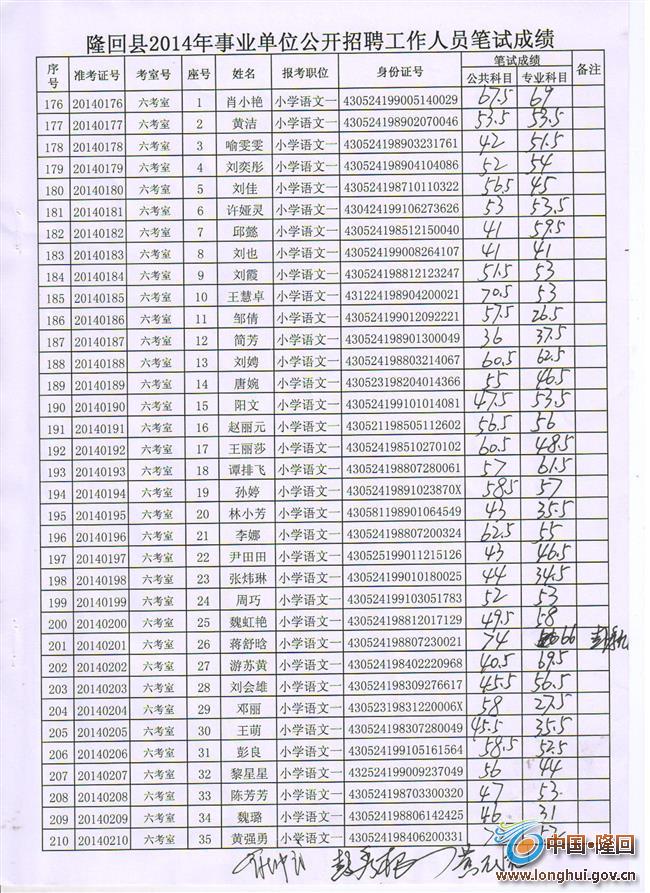 隆回县2014年事业单位公开招聘工作人员笔试成绩
序号 准考证号 考室号 座号 姓名 报考职位 身份证号 笔试成绩 备注
公共科目 专业科目
176 20140176 六考室 1 肖小艳 小学语文一 430524199005140029 67.5 69
177 20140177 六考室 2 黄洁 小学语文一 430524198902070046 53.5 53.5
178 20140178 六考室 3 喻雯雯 小学语文一 430524198903231761 42 51.5
179 20140179 六考室 4 刘奕彤 小学语文一 430524198904104086 52 54
180 20140180 六考室 5 刘佳 小学语文一 430524198710110322 56.5 45
181 20140181 六考室 6 许娅灵 小学语文一 430424199106273626 53 53.5
182 20140182 六考室 7 邱懿 小学语文一 430524198512150040 41 59.5
183 20140183 六考室 8 刘也 小学语文一 430524199008264107 41 41
184 20140184 六考室 9 刘霞 小学语文一 430524198812123247 51.5 53
185 20140185 六考室 10 王慧卓 小学语文一 431224198904200021 70.5 53
186 20140186 六考室 11 邹倩 小学语文一 430524199012092221 57.5 26.5
187 20140187 六考室 12 简芳 小学语文一 430524198901300049 36 37.5
188 20140188 六考室 13 刘娉 小学语文一 430524198803214067 60.5 62.5
189 20140189 六考室 14 唐婉 小学语文一 430523198204014366 55 46.5
190 20140190 六考室 15 阳文 小学语文一 430524199101014081 47.5 53.5
191 20140191 六考室 16 赵丽元 小学语文一 430521198505112602 56.5 56
192 20140192 六考室 17 王丽莎 小学语文一 430524198510270102 60.5 48.5
193 20140193 六考室 18 谭排飞 小学语文一 430524198807280061 57 61.5
194 20140194 六考室 19 孙婷 小学语文一 43052419891023870X 58.5 57
195 20140195 六考室 20 林小芳 小学语文一 430581198901064549 43 35.5
196 20140196 六考室 21 李娜 小学语文一 430524198807200324 62.5 55
197 20140197 六考室 22 尹田田 小学语文一 430525199011215126 43 46.5
198 20140198 六考室 23 张炜琳 小学语文一 430524199010180025 44 34.5
199 20140199 六考室 24 周巧 小学语文一 430524199103051783 52 53
200 20140200 六考室 25 魏虹艳 小学语文一 430524198812017129 49.5 58
201 20140201 六考室 26 蒋舒晗 小学语文一 430524198807230021 74 66
202 20140202 六考室 27 游苏黄 小学语文一 430524198402220968 40.5 69.5
203 20140203 六考室 28 刘会雄 小学语文一 430524198309276617 45.5 56.5
204 20140204 六考室 29 邓丽 小学语文一 43052319831220006X 58 27.5
205 20140205 六考室 30 王萌 小学语文一 430524198307280049 45.5 35.5
206 20140206 六考室 31 彭良 小学语文一 430524199105161564 58.5 52.5
207 20140207 六考室 32 黎星星 小学语文一 432524199009237049 56 44
208 20140208 六考室 33 陈芳芳 小学语文一 430524198703300320 47 53
209 20140209 六考室 34 魏璐 小学语文一 430524198806142425 46 31
210 20140210 六考室 35 黄强勇 小学语文一 430524198406200331
中国·隆回
www.longhui.gov.cn